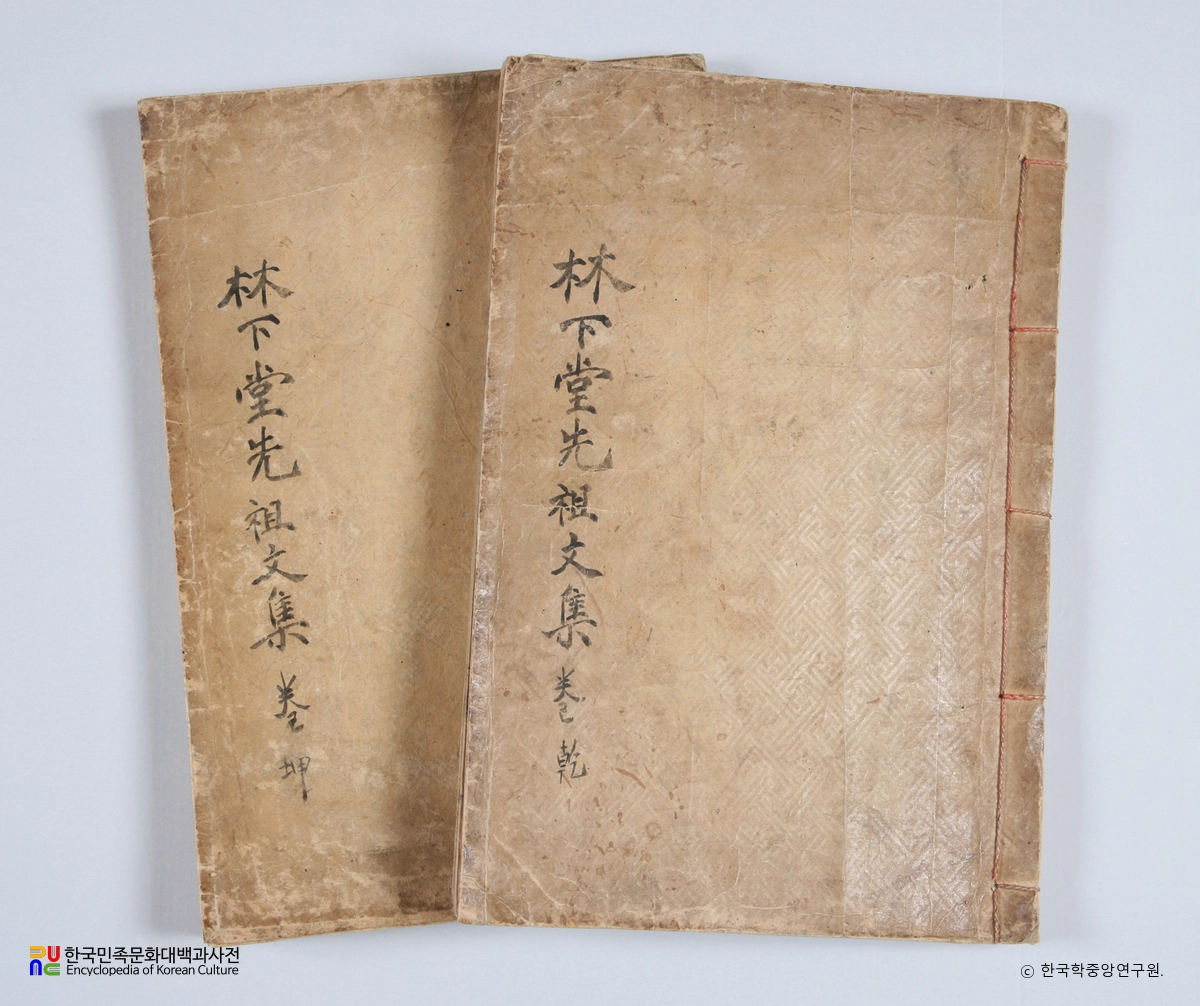 林下堂先祖文集 卷乾
林下堂先祖文集 卷坤
한국민족문화대백과사전
Encyclopedia of Korean Culture
ⓒ 한국학중앙연구원.